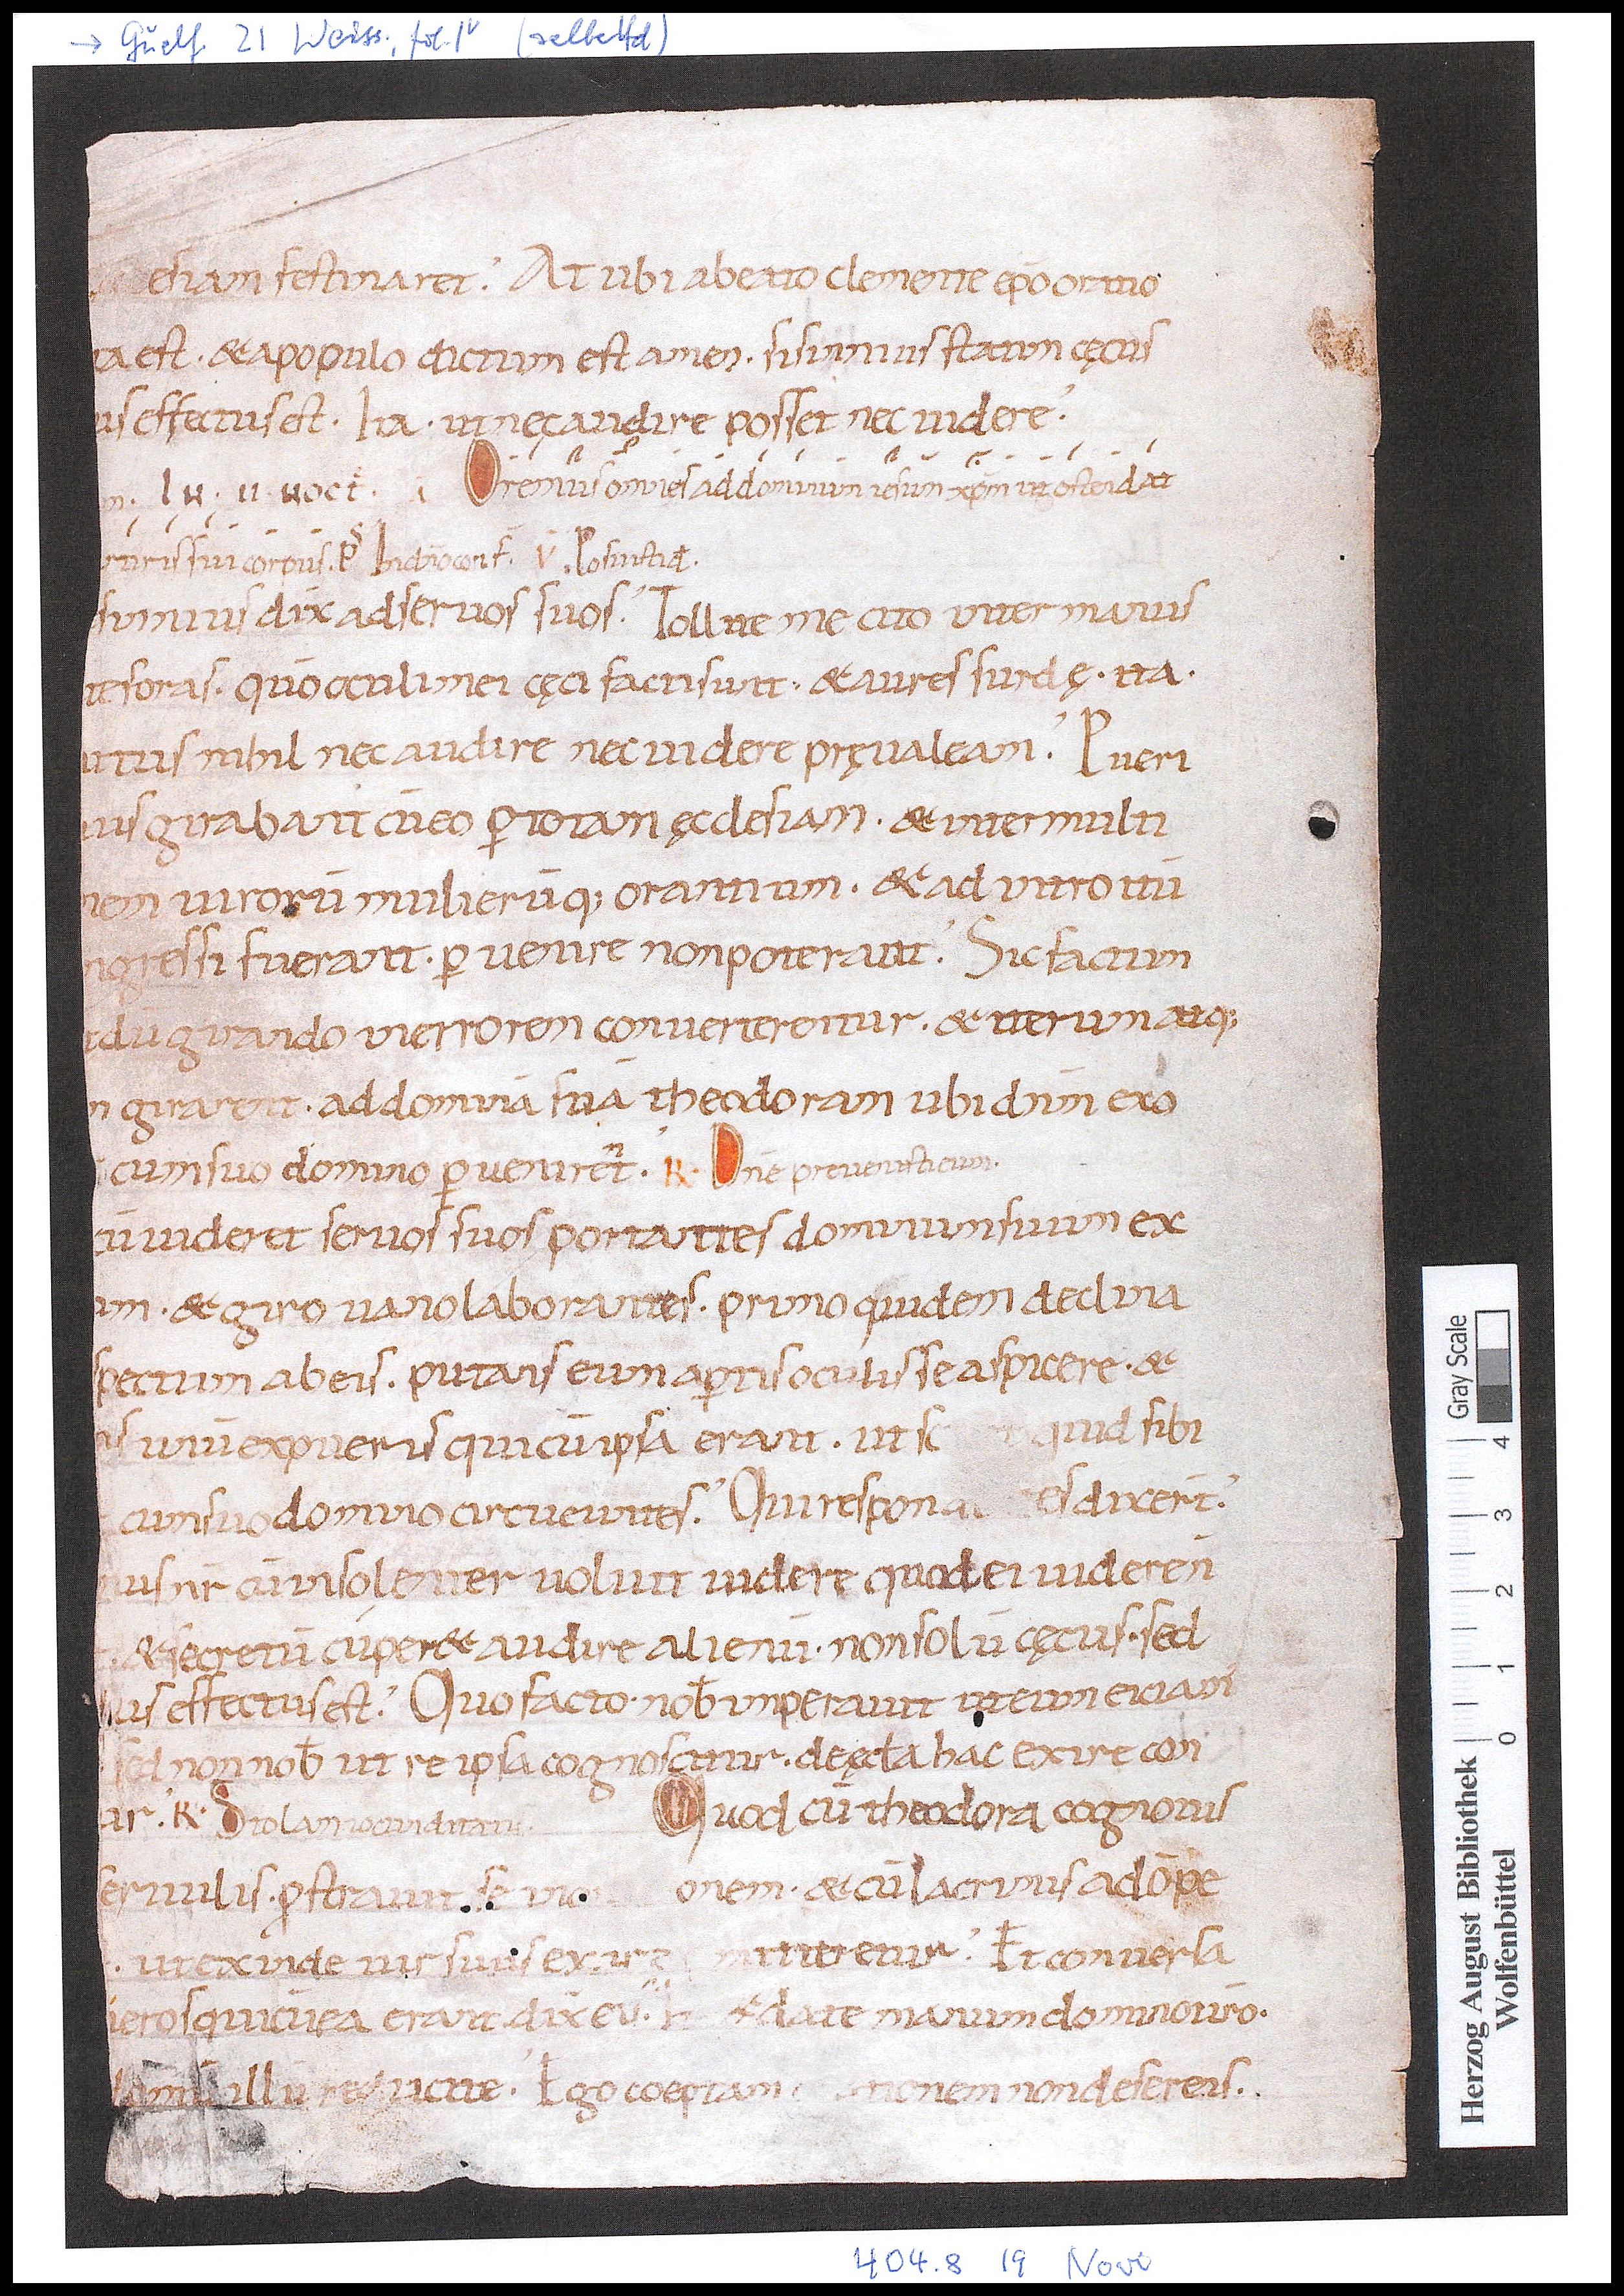 → Guelf. 21 Weiss., fol. 1v (selbstd)
esiam festinaret. At ubi abeato clemente epō oratio
ta est. & apopulo dictum est amen. sisinnius statim cęcus
us effectus est. Ita. ut nec audire posset nec uidere.
In. ii. noct. Oremus omnes ad dominum iesum xpm ut ostendat
rtiris sui corpus. Ps V. Posuistid.
sinnius dix ad seruos suos. Tollite me cito inter manus
te foras. quō oculi mei cęci facti sunt. & aures surdę. ita.
itus nihil nec audire nec uidere pręualeam. Pueri
ius girabant cū eo ꝑ totam ęcclesiam. & inter multi
nem uirorū mulierūq; orantium. & ad introitū
ngressi fuerant. ꝑ uenire non poterant. Sic factum
t dū girando in errorem conuerterentur. & iterum atq;
n girarent. ad dominā suā theodoram ubi dnm exo
cum suo domino ꝑ uenirent. R. Dne preuenisti eum.
cū uideret seruos suos portantes dominum suum ex
um. & giro uano laborantes. primo quidem declina
spectum ab eis. putans eum aꝑtis oculis se aspicere. &
is unū ex pueris qui cū ipsa erant. ut sc quid sibi
cum suo domino circueuntes. Qui respon es dixert.
nus nr cū insolenter uoluit uidere quod ei uideren
. & secretū cuper& audire alienū. non solū cęcus. sed
dus effectus est. Quo facto. nob imperauit ut eum eiciam
sed non nob ut re ipsa cognoscitur. de ęccla hac exire con
ur. R. Stolam iocunditatis. Quod cū theodora cognouis
seruulis. ꝓstrauit se in o onem. & cū lacrimis ad ope
. ut exinde uir suus exire mitteretur. Et conuersa
ueros qui cū ea erant dix eu. It & date manum domino uro.
domū illū reducite. Ego coeptam tionem non deserens.
Gray Scale
0 1 2 3 4
Herzog August Bibliothek
Wolfenbüttel
404.8 19 Novi